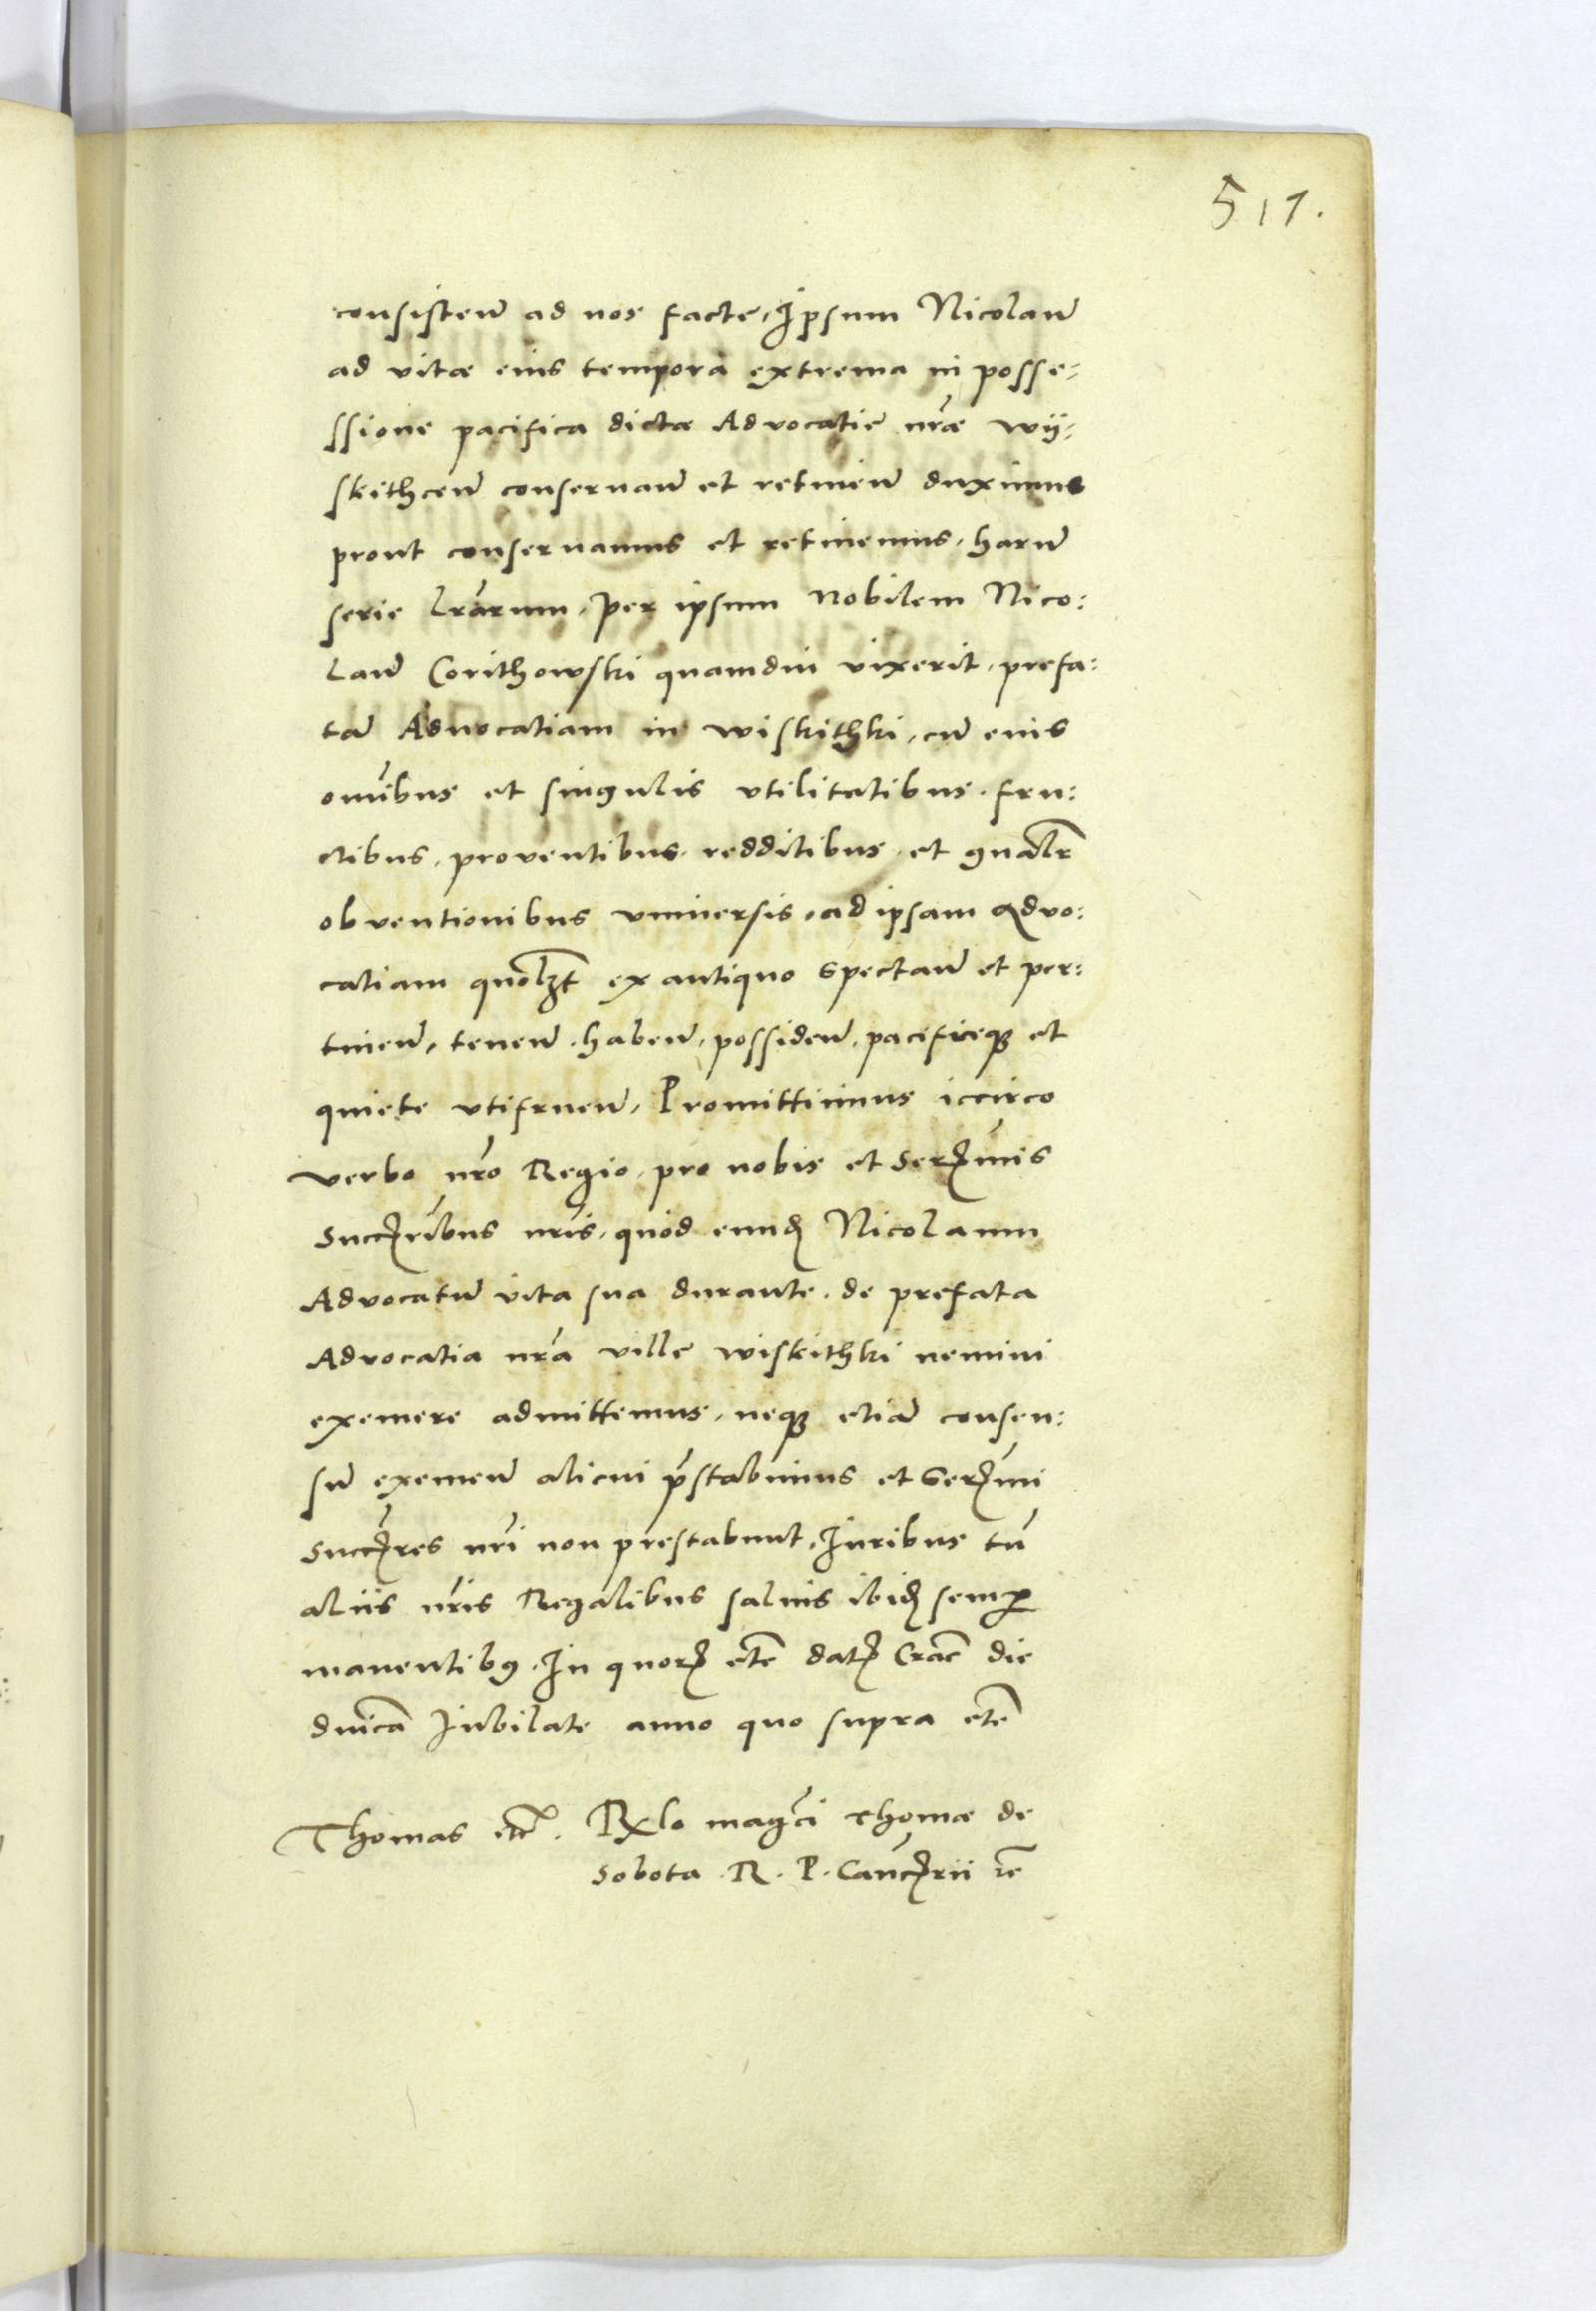 511.
consisteñ ad nos facte, Ipsum Nicolaũ
ad vitæ eius tempora extrema in posse-
ssione pacifica dictæ Advocatie nr̃æ wij-
skithceñ conseruañ et retineñ duximus
prout conseruamus et retinemus, harũ
serie lr̃arum, per ipsum Nobilem Nico:
laũ Corithowski quamdiu vixerit, prefa:
tã Aduocatiam in wiskithki, cũ eius
omĩbus et singulis vtilitatibus, fru:
ctibus, proventibus, redditibus, et gñalr̃
obventionibus vniuersis, ad ipsam Advo:
catiam quolꝫt ex antiquo Spectañ et per:
tineñ, teneñ, habeñ, possideñ, pacificeqꝫ et
quiete vtifrueñ, Promittimus iccirco
verbo nr̃o Regio, pro nobis et Serꝫmis
Succꝫribus nr̃is, quod eundꝫ Nicolaum
Advocatũ vita sua durante, de prefata
Advocatia nr̃a ville wiskithki nemini
exemere admittemus, neqꝫ etiã consen:
sũ exemeñ alicui p̃stabimus et Serꝫmi
Succꝫres nr̃i non prestabunt, Iuribus tñ
aliis nr̃is Regalibus saluis ibidꝫ semꝑ
manentibꝰ. In quorꝫ etc̃ datꝫ Crac̃ die
dnĩca Iubilate anno quo supra etc̃
Thomas etc̃. Rx̃lo mag̃ci Thomæ de
Sobota. R. P. Canc̃ꝫrii rc̃